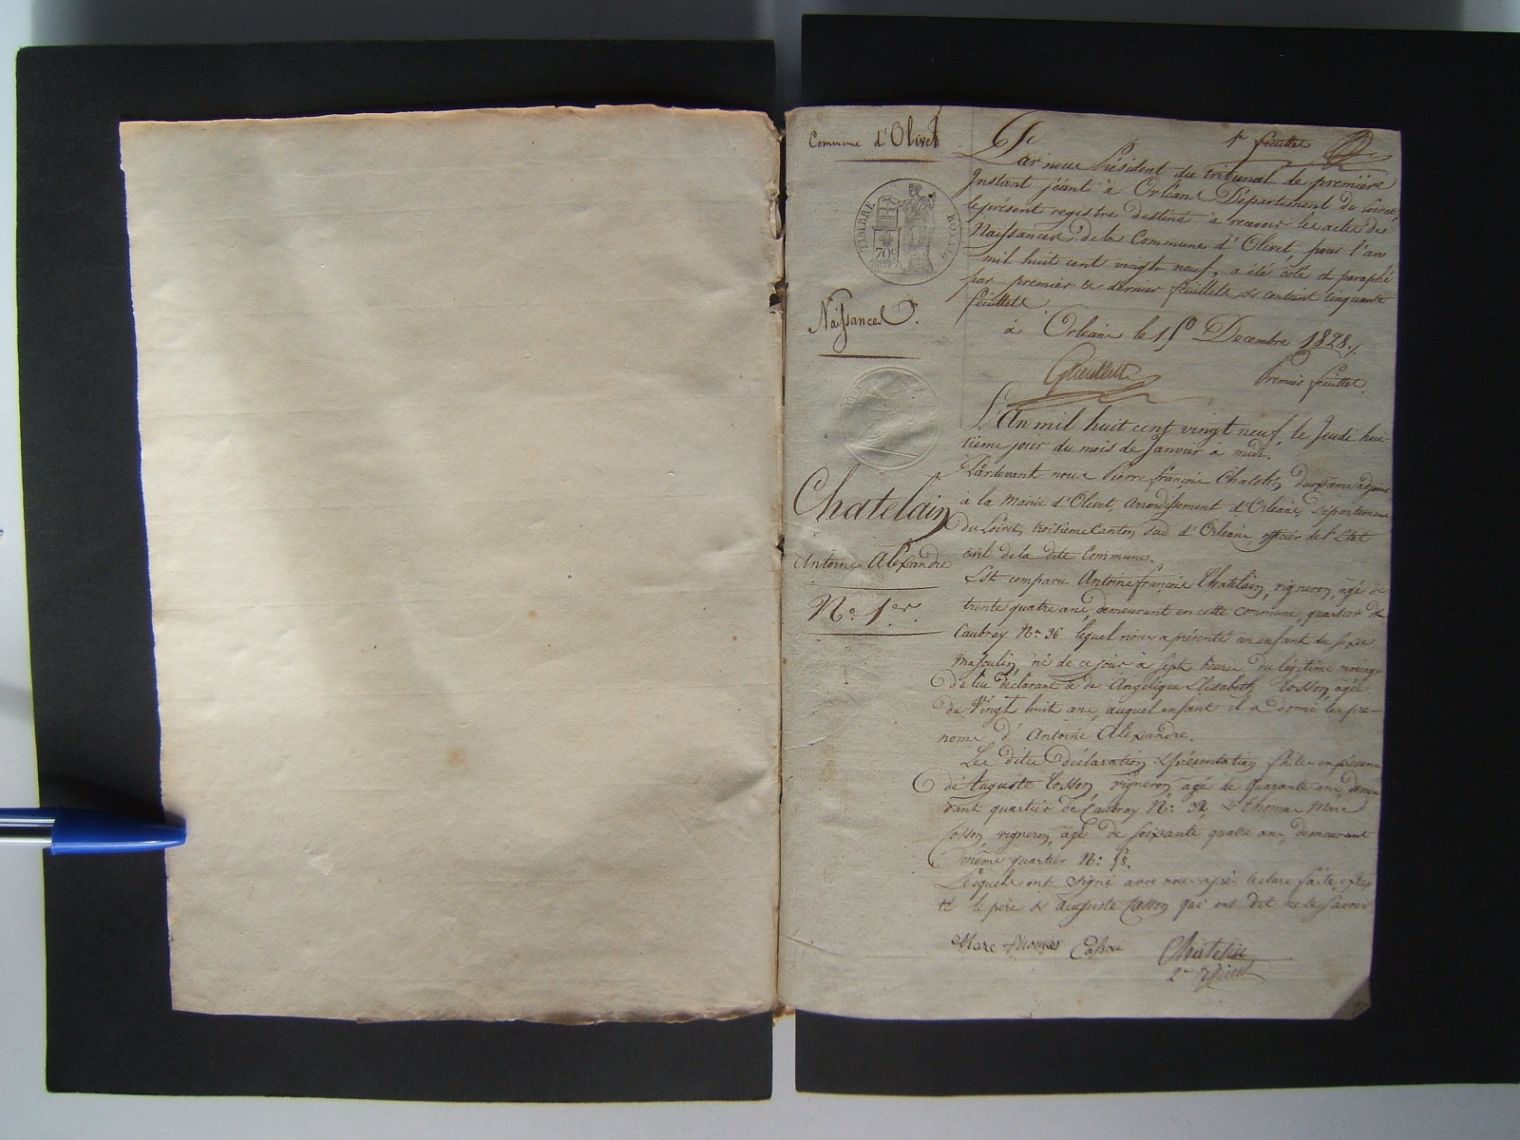 Commune d'Olivet
1er feuillet
Par nous Président du tribunal de première
Instant séant à Orléans Département du Loiret,
le présent registre destiné à recevoir les actes de
Naissances de la Commune d'Olivet, pour l'an
mil huit cent vingt neuf, a été coté et paraphé
par premier & dernier feuillets & contient Cinquante
feuillets
à Orléans le 15 Decembre 1828./.
TIMBRE ROYAL
70
Naissances
Premier feuillet.
L'An mil huit cent vingt neuf, le Jeudi hui-
tième jour du mois de Janvier à midi.
Pardevant nous Pierre françois Chatelin, deuxième adjoint
à la Mairie d'Olivet, arrondissement d'Orléans, Département
du Loiret, troisième Canton sud d'Orléans, officier de l'Etat
civil de la dite Commune.
Chatelain
Antoine Alexandre
No. 1.er
Est comparu Antoine françois Chatelain, vigneron, âgé de
trente quatre ans, demeurant en cette commune, quartier de
Caubray No. 36 lequel nous a présenté un enfant du sexe
Masculin, né de ce jour à sept heures du légitime mariage
de lui déclarant & de Angélique Elisabeth Cosson, âgée
de Vingt huit ans, auquel enfant il a donné les pré-
noms d'Antoine Alexandre.
Les dites déclaration & présentation faites en présence
de Auguste Cosson, vigneron, âgé de quarante ans, demeu-
rant quartier de Caubray No. 32, & Thomas Marc
Cosson, vigneron, âgé de soixante quatre ans, demeurant
même quartier No. 58.
Lesquels ont signé avec nous après lecture faite, excep-
té le père & Auguste Cosson qui ont dit ne le savoir
Marc thomas Cosson Chatelin